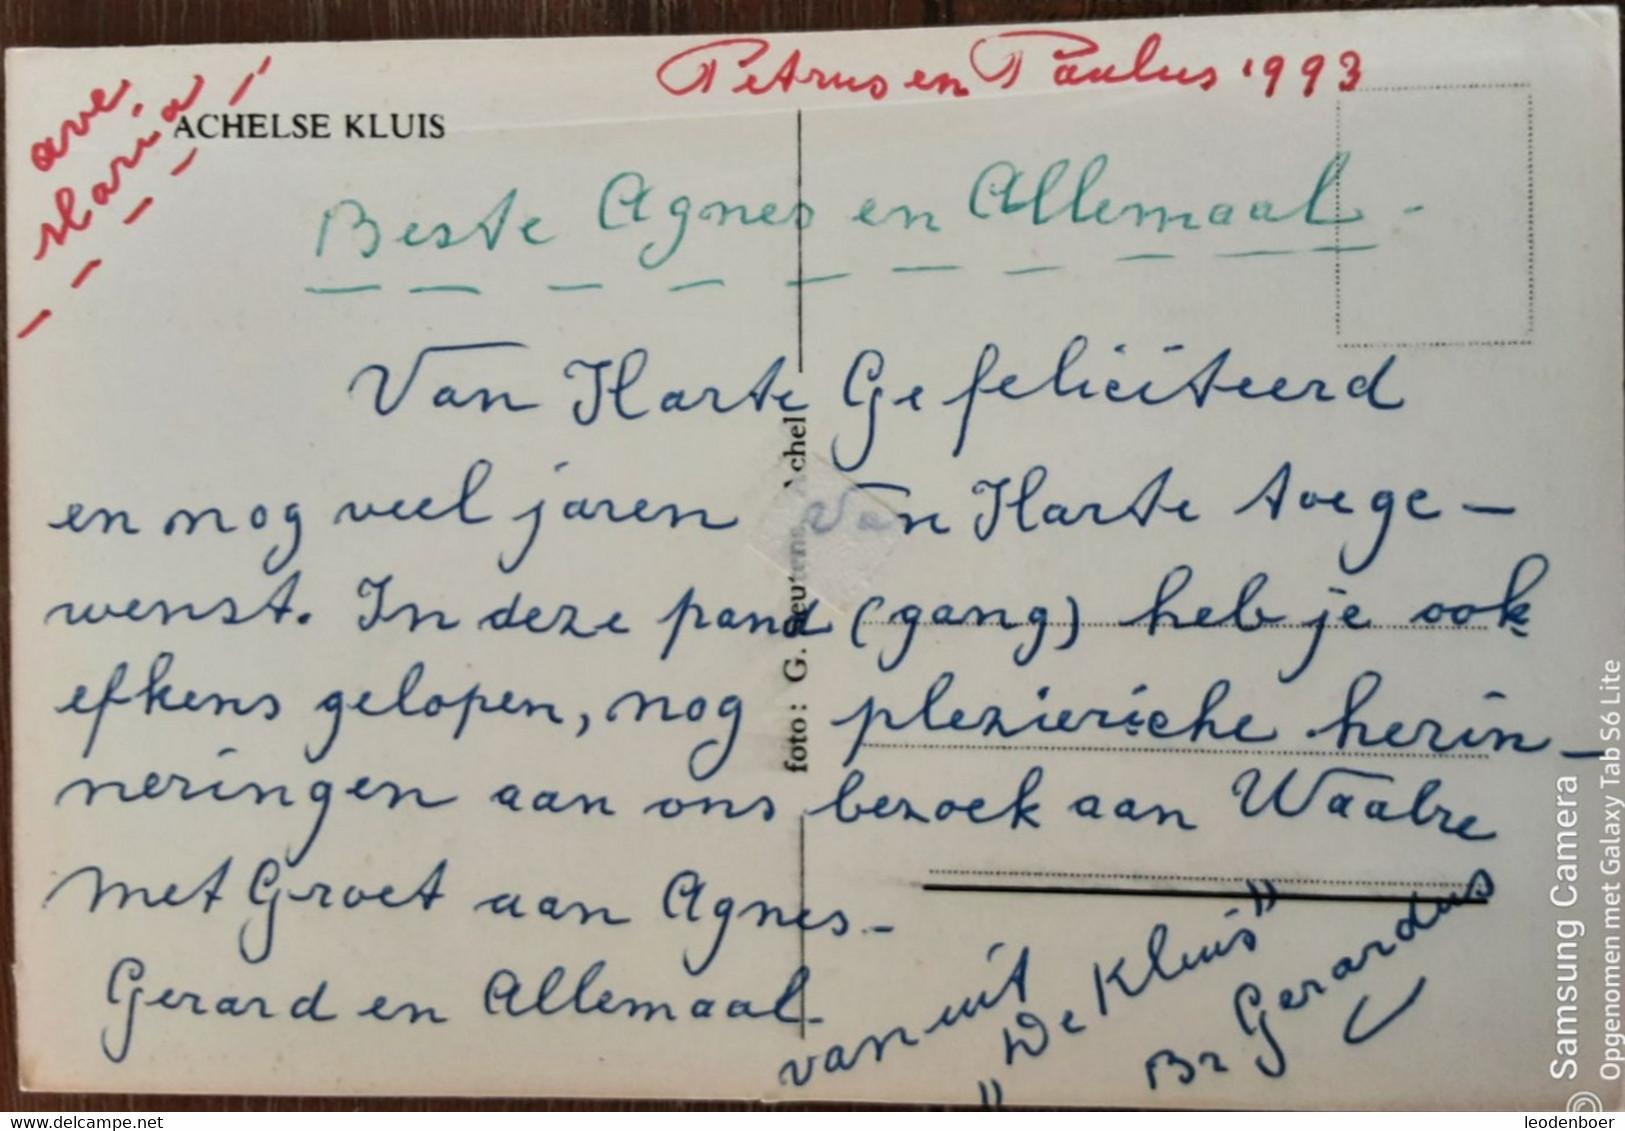 Petrus en Paulus 1993
ave.
Maria
ACHELSE KLUIS
Beste Agnes en Allemaal -
Van Harte Gefeliciteerd
en nog veel jaren Van Harte toege-
wenst. In deze pand (gang) heb je ook
efkens gelopen, nog plezieriche herin-
neringen aan ons bezoek aan Waalre
met Groet aan Agnes-
Gerard en Allemaal.
van uit
"De Kluis"
Br Gerardus
foto: G. Achel
Samsung Camera
Opgenomen met Galaxy Tab S6 Lite
©
leodenboer